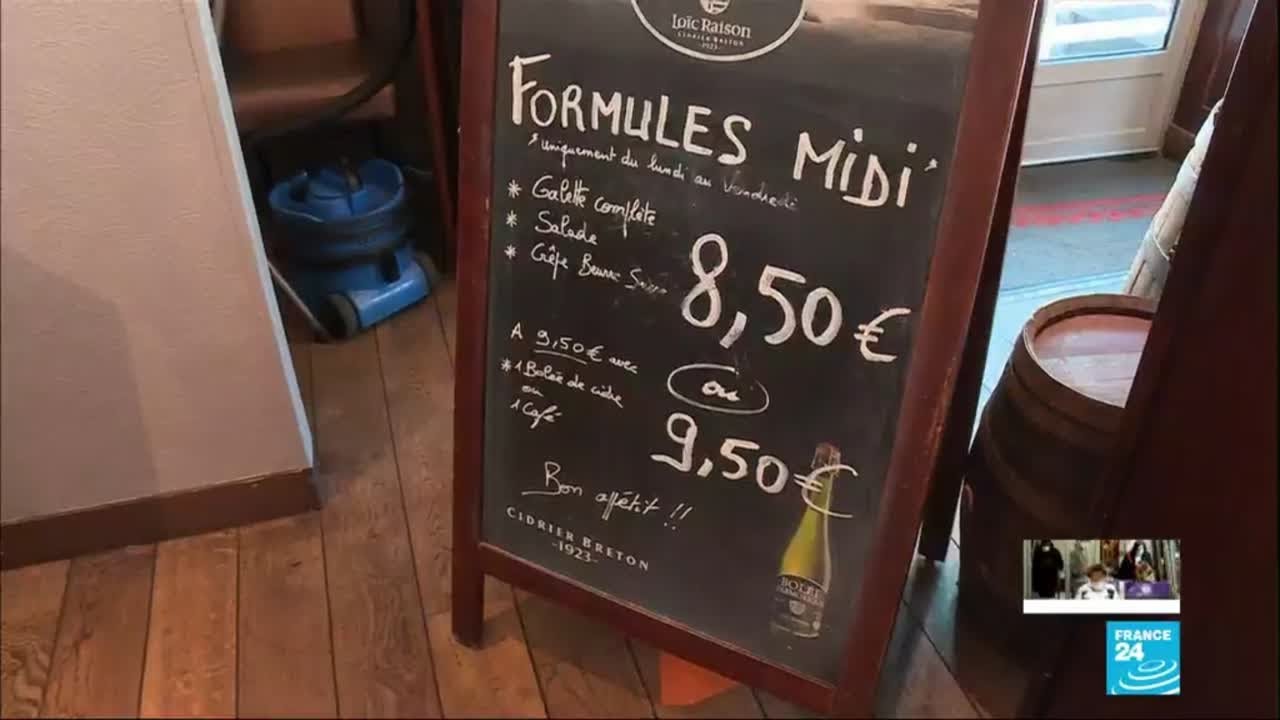 Loïc Raison
CIDRIER BRETON
-1923-
FORMULES MIDI
*uniquement du lundi au Vendredi*
* Galette complète
* Salade
* Crêpe Beurre
8,50€
A 9,50€ avec
* 1 Bolée de cidre
ou
1 Café
ou
9,50€
Bon appétit !!
CIDRIER BRETON
-1923-
BOLÉE
FRANCE
24